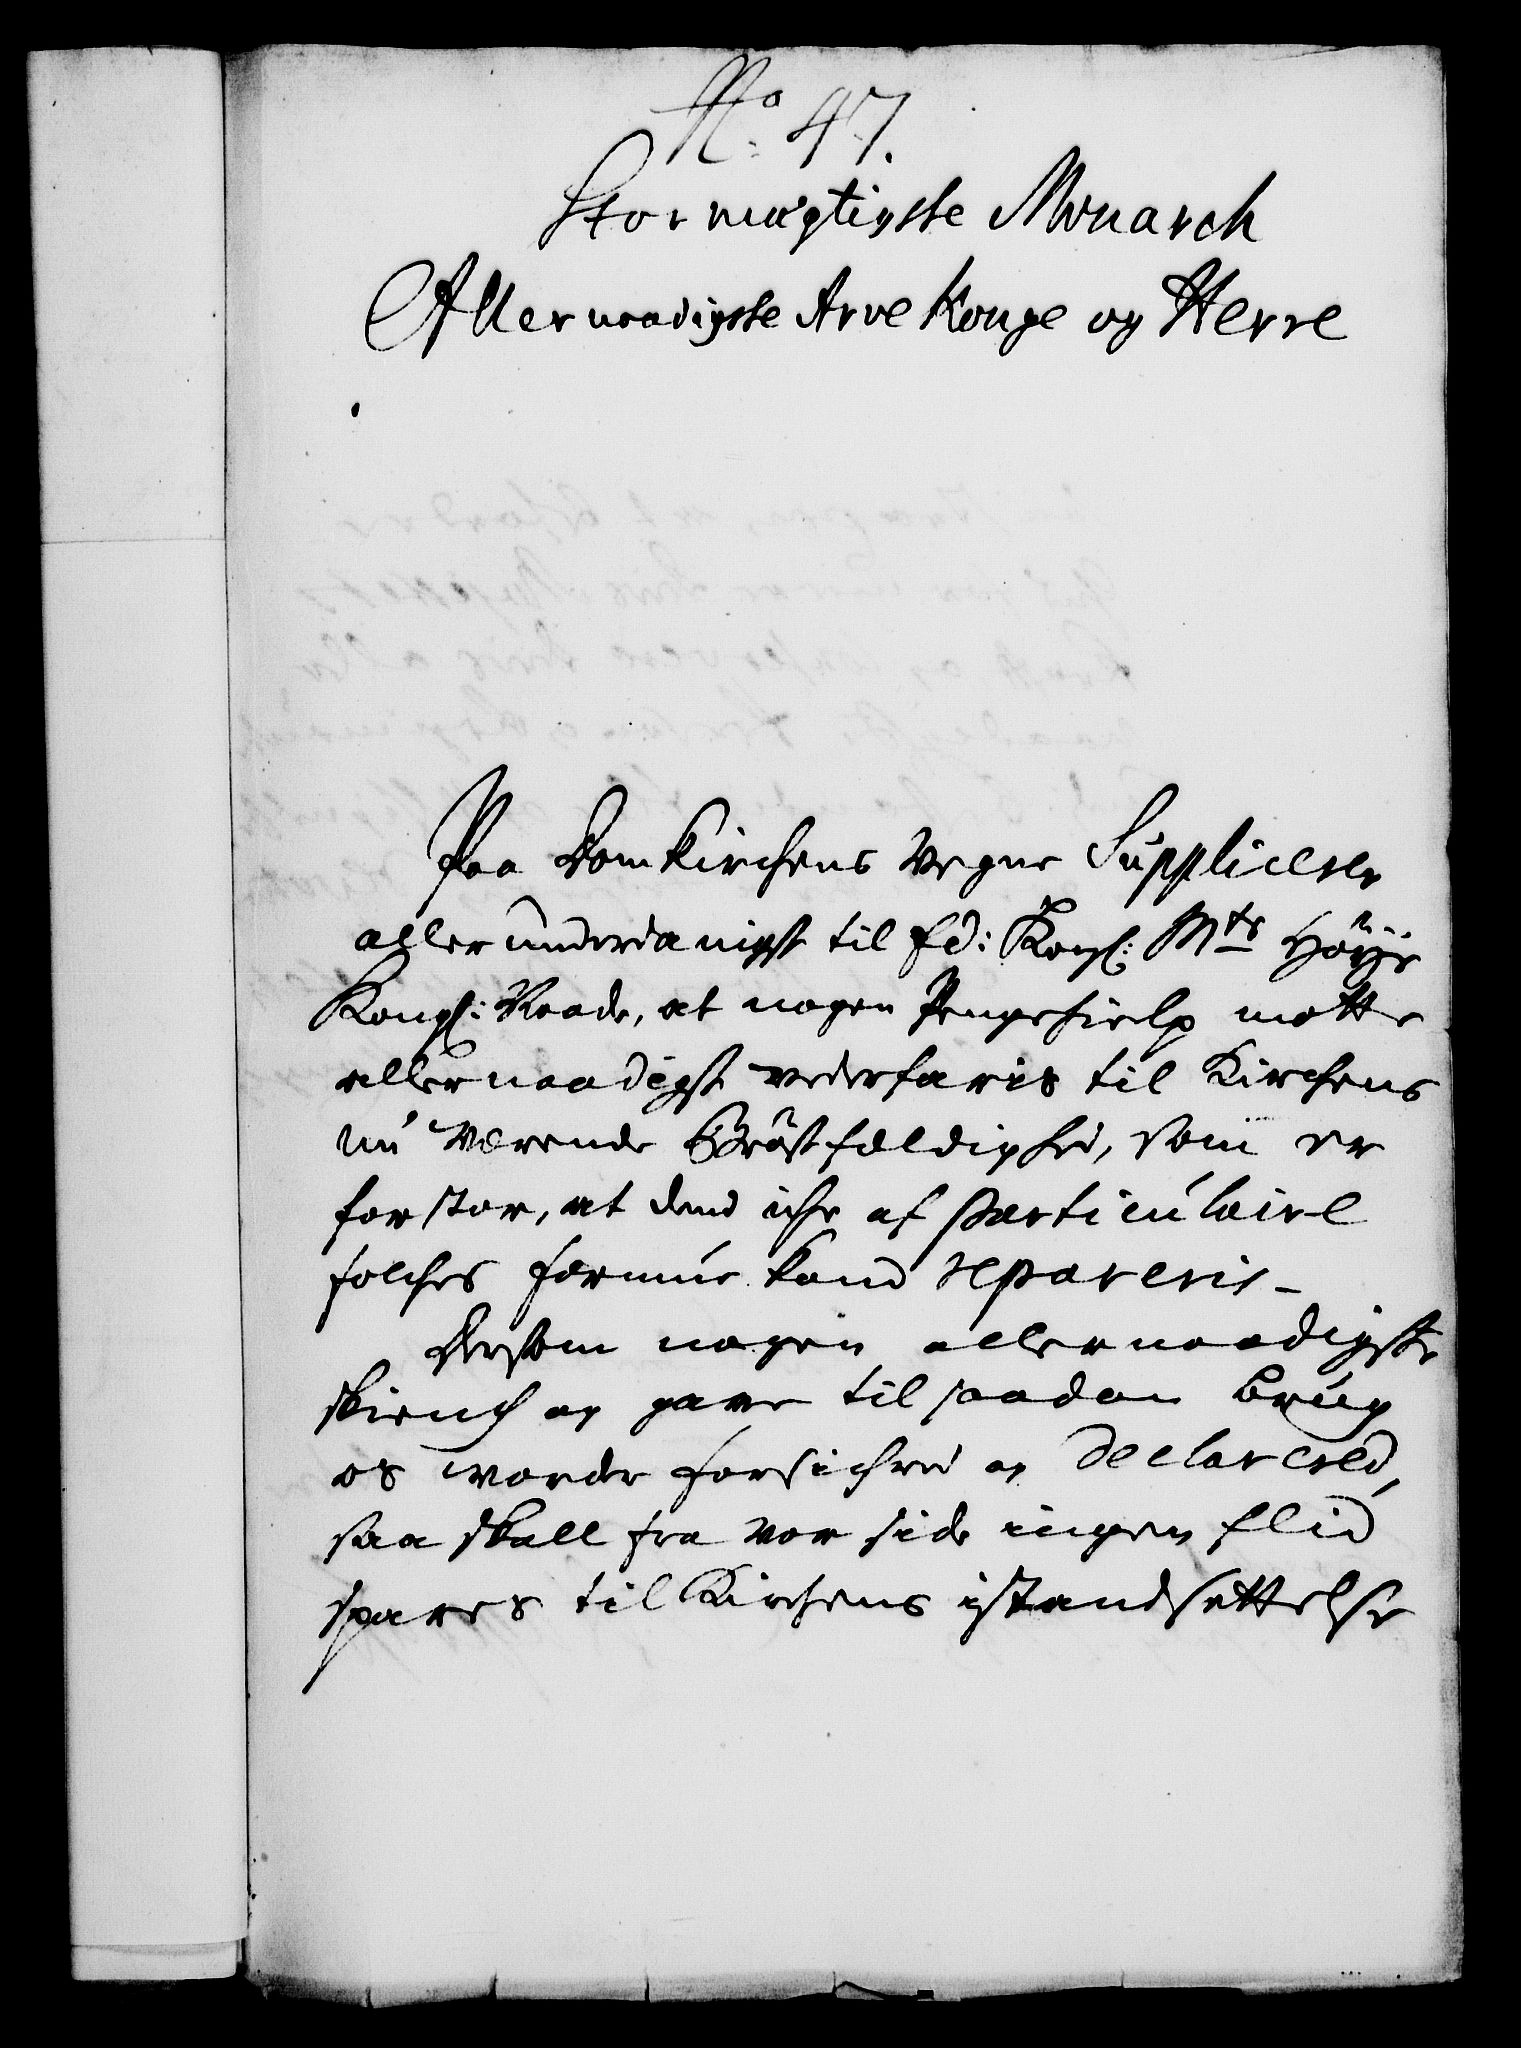 No: 47.
Stormægtigste Monarch
Allernaadigste Arve Konge og Herre
Paa Domkirchens Vegne Supplicerer
allerunderdanigst til Ed: Kongl: Mts Höye
Kongl: Naade, at nogen Pengehielp motte
allernaadigst vederfaris til Kirchens
nu værende Bröstfeldighed, som er
for stor, at dend iche af particulaire
folches formue kand repareris _
Dersom nogen allernaadigste
skienck og gave til saadan brug
os worde forsichred og declarered,
saa skall fra vor side ingen flid
spares til Kirchens istandsettelse